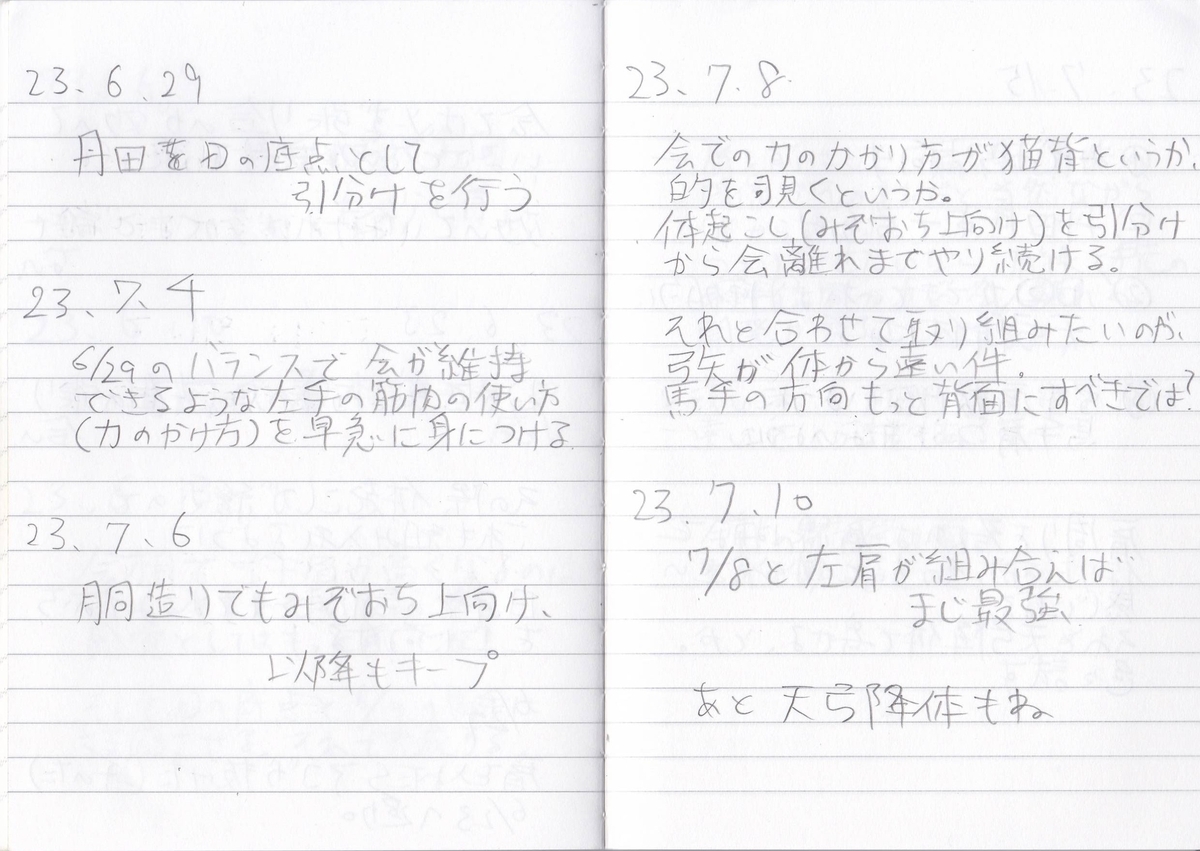 23、6、29
丹田を日の底点として
引分けを行う
23、7、4
6/29のバランスで会が維持
できるような左手の筋肉の使い方
(力のかけ方)を早急に身につける
23、7、6
胴造りでもみぞおち上向け、
以降もキープ
23、7、8
会での力のかかり方が猫背というか、
的を覗くというか。
体起こし(みぞおち上向け)を引分け
から会離れまでやり続ける。
それと合わせて取り組みたいのが、
弓矢が体から遠い件。
馬手の方向、もっと背面にすべきでは?
23、7、10
7/8と左肩が組み合えば
まじ最強、
あと天弓降体もね